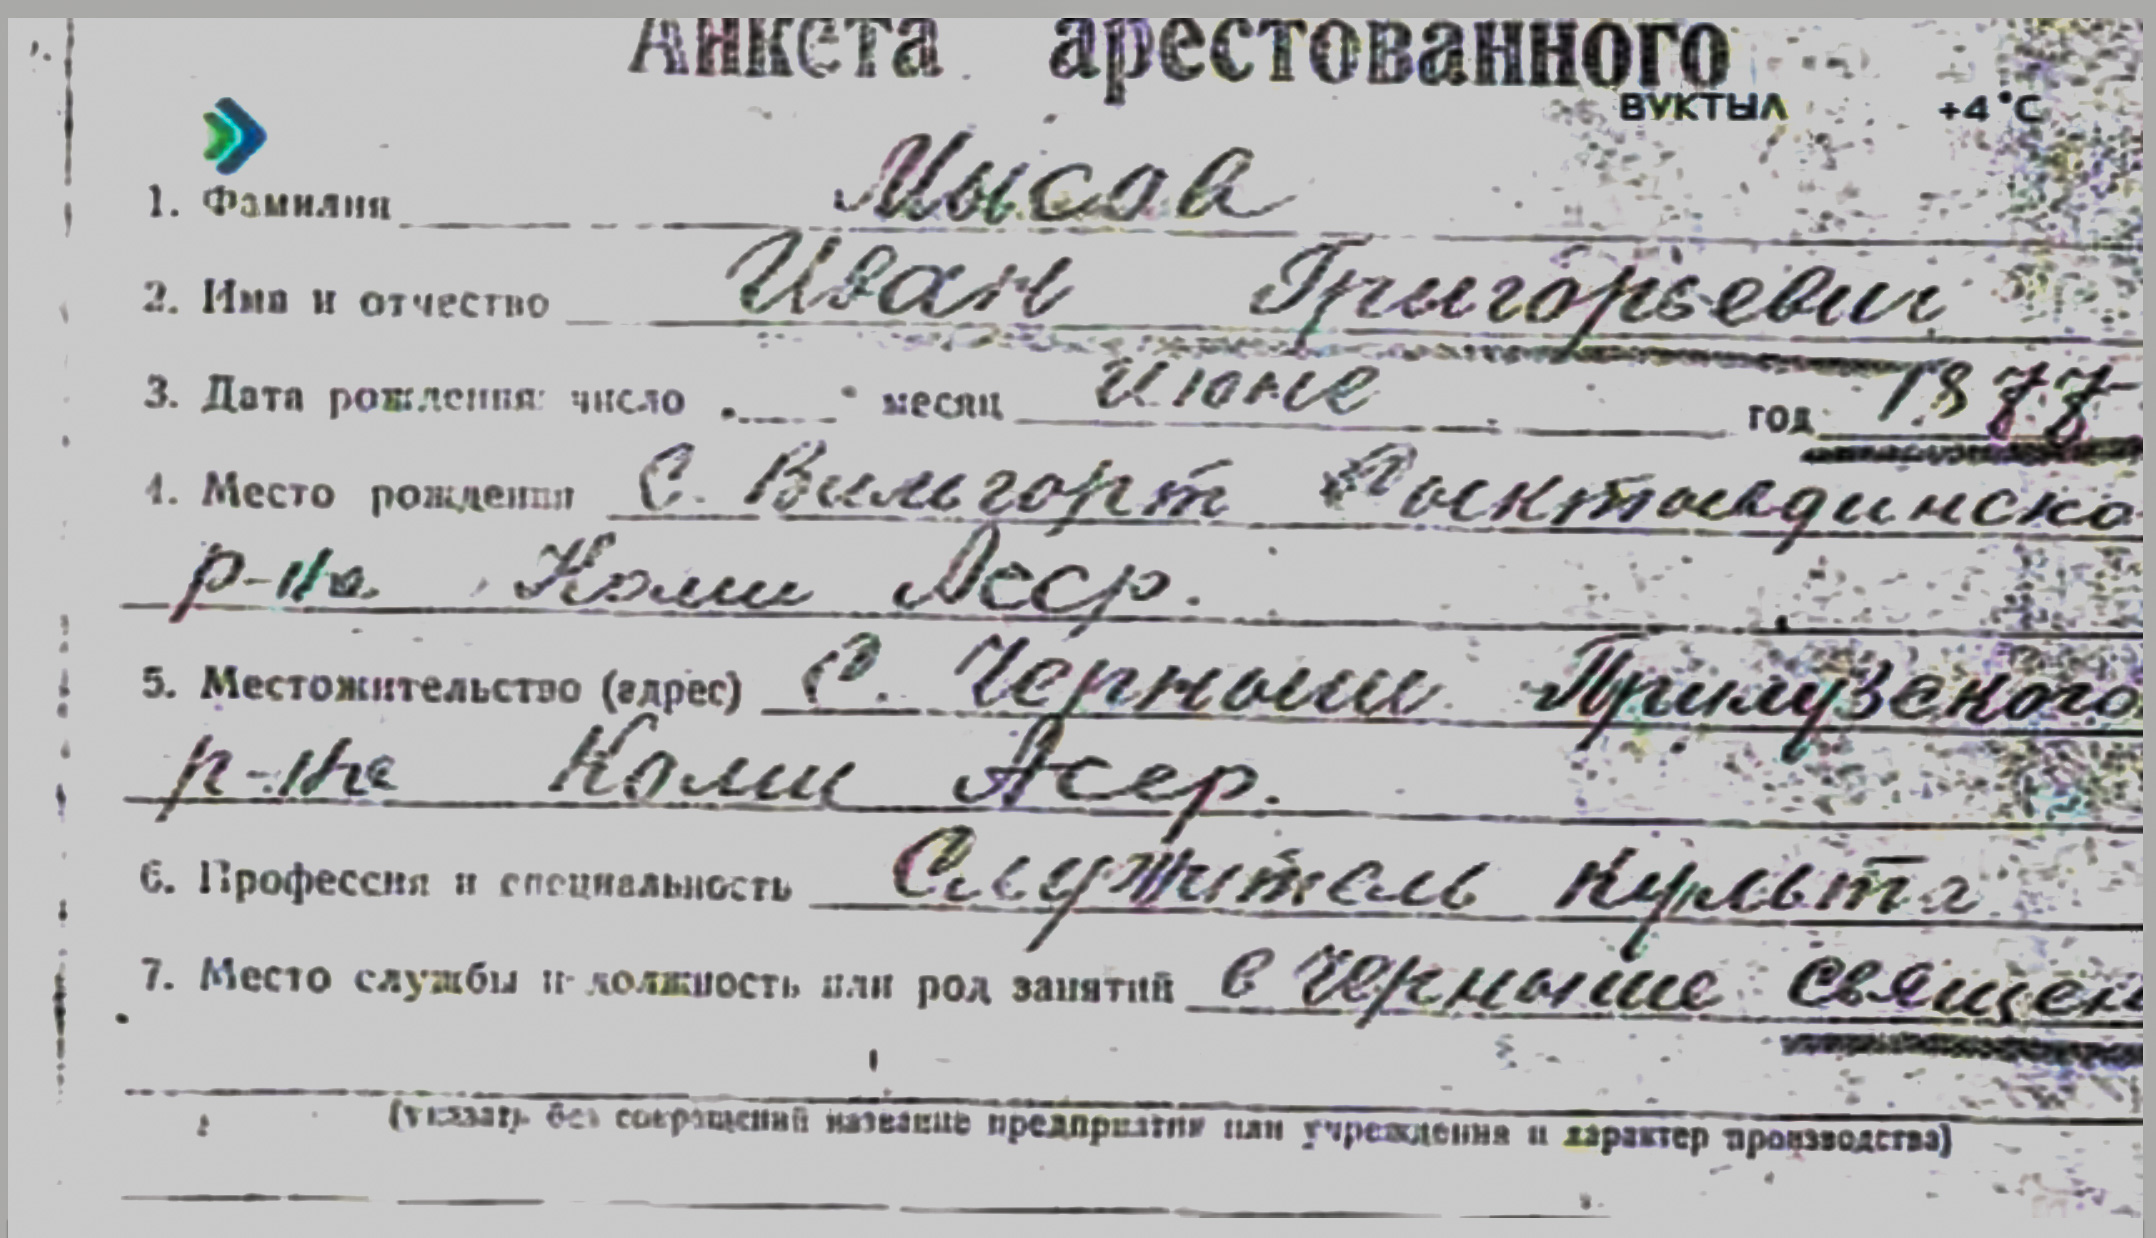 Анкета арестованного
ВУКТЫЛ +4°C
1. Фамилия Мысов
2. Имя и отчество Иван Григорьевич
3. Дата рождения: число месяц Июне год 1877
4. Место рождения С. Вильгорт Сыктывдинско
р-на Коми Асср.
5. Местожительство (адрес) С. Черныш Прилузского
р-на Коми Асср.
6. Профессия и специальность Служитель культа
7. Место службы и должность или род занятий в Черныше священ
(указать без сокращений название предприятия или учреждения и характер производства)